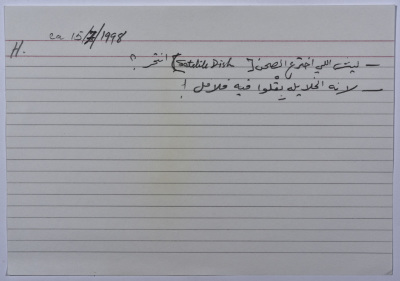 H.
ca 15/7/1998
– ليش اللي اخترع الصحن [Satelite Dish] انتحر ؟
– لانه الخلايله بِقْلوا فيه فلافل !